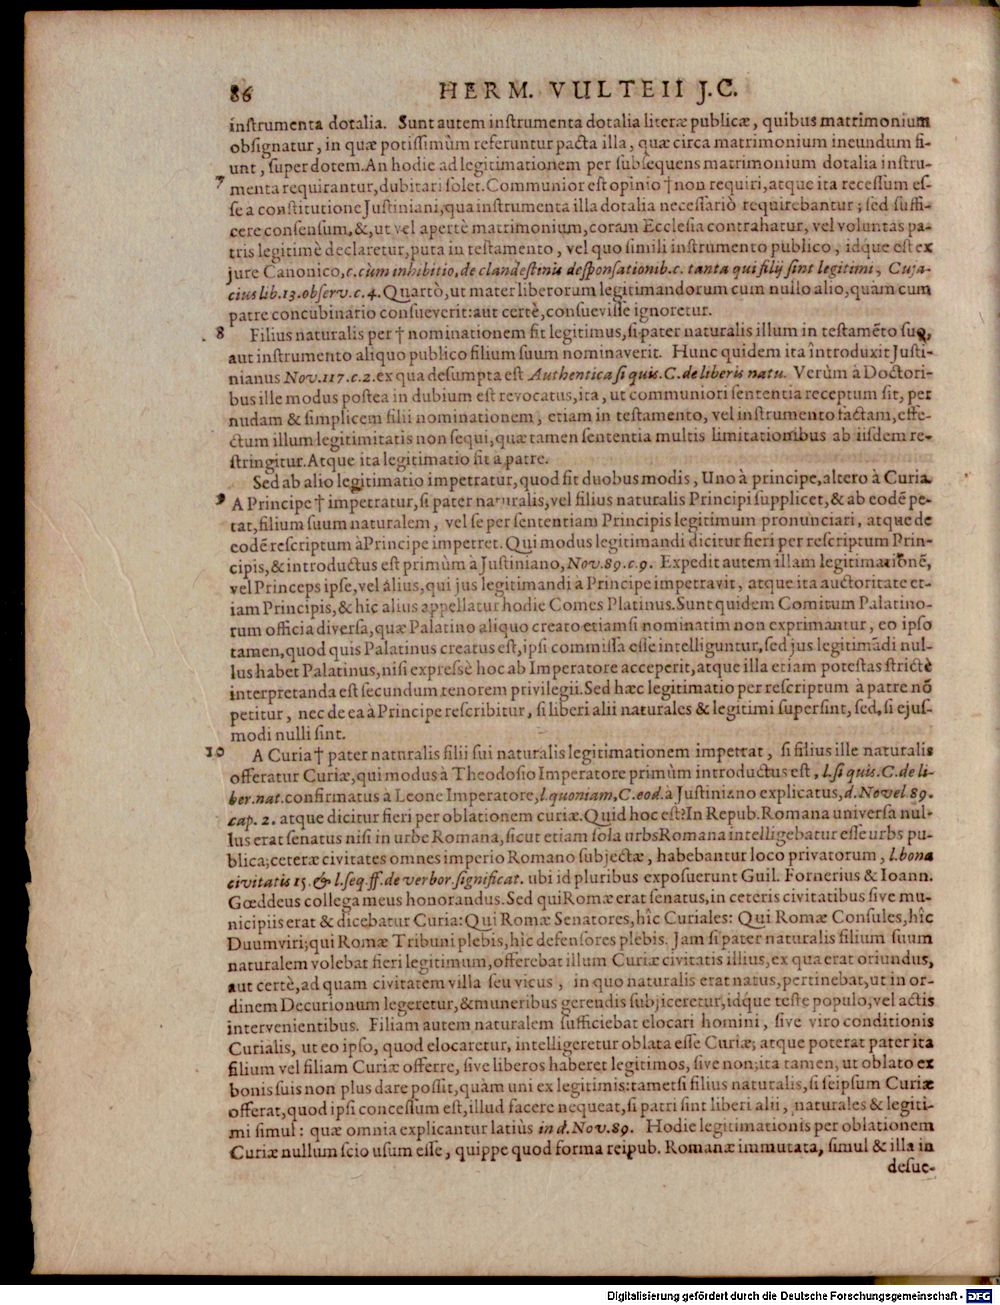 86 HERM. VULTEII J.C.
inſtrumenta dotalia. Sunt autem inſtrumenta dotalia literæ publicæ, quibus matrimonium
obſignatur, in quæ potiſſimùm referuntur pacta illa, quæ circa matrimonium ineundum fi-
unt, ſuper dotem. An hodie ad legitimationem per ſubſequens matrimonium dotalia inſtru-
7 menta requirantur, dubitari ſolet. Communior eſt opinio † non requiri, atque ita receſſum eſ-
ſe a conſtitutione Juſtiniani, qua inſtrumenta illa dotalia neceſſariò requirebantur; ſed ſuffi-
cere conſenſum, &, ut vel apertè matrimonium, coram Eccleſia contrahatur, vel voluntas pa-
tris legitimè declaretur, puta in teſtamento, vel quo ſimili inſtrumento publico, idque eſt ex
jure Canonico, c. cùm inhibitio, de clandeſtinis deſponſationib. c. tanta qui filij ſint legitimi, Cuja-
cius lib. 13. obſerv. c. 4. Quartò, ut mater liberorum legitimandorum cum nullo alio, quàm cum
patre concubinario conſueverit: aut certè, conſueviſſe ignoretur.
8 Filius naturalis per † nominationem fit legitimus, ſi pater naturalis illum in teſtamẽto ſuo,
aut inſtrumento aliquo publico filium ſuum nominaverit. Hunc quidem ita introduxit Juſti-
nianus Nov. 117. c. 2. ex qua deſumpta eſt Authentica ſi quis. C. de liberis natu. Verùm à Doctori-
bus ille modus poſtea in dubium eſt revocatus, ita, ut communiori ſententia receptum ſit, per
nudam & ſimplicem filii nominationem, etiam in teſtamento, vel inſtrumento factam, effe-
ctum illum legitimitatis non ſequi, quæ tamen ſententia multis limitationibus ab iiſdem re-
ſtringitur. Atque ita legitimatio fit à patre.
Sed ab alio legitimatio impetratur, quod fit duobus modis, Uno à principe, altero à Curia.
9 A Principe † impetratur, ſi pater naturalis, vel filius naturalis Principi ſupplicet, & ab eodẽ pe-
tat, filium ſuum naturalem, vel ſe per ſententiam Principis legitimum pronunciari, atque de
eodẽ reſcriptum à Principe impetret. Qui modus legitimandi dicitur fieri per reſcriptum Prin-
cipis, & introductus eſt primùm à Juſtiniano, Nov. 89. c. 9. Expedit autem illam legitimationẽ,
vel Princeps ipſe, vel alius, qui jus legitimandi à Principe impetravit, atque ita auctoritate et-
iam Principis, & hic alius appellatur hodie Comes Platinus. Sunt quidem Comitum Palatino-
rum officia diverſa, quæ Palatino aliquo creato etiamſi nominatim non exprimantur, eo ipſo
tamen, quod quis Palatinus creatus eſt, ipſi commiſſa eſſe intelliguntur, ſed jus legitimãdi nul-
lus habet Palatinus, niſi expreſsè hoc ab Imperatore acceperit, atque illa etiam poteſtas ſtrictè
interpretanda eſt ſecundum tenorem privilegii. Sed hæc legitimatio per reſcriptum à patre nõ
petitur, nec de ea à Principe reſcribitur, ſi liberi alii naturales & legitimi ſuperſint, ſed, ſi ejuſ-
modi nulli ſint.
10 A Curia † pater naturalis filii ſui naturalis legitimationem impetrat, ſi filius ille naturalis
offeratur Curiæ, qui modus à Theodoſio Imperatore primùm introductus eſt, l. ſi quis. C. de li-
ber. nat. confirmatus à Leone Imperatore, l. quoniam, C. eod. à Juſtiniano explicatus, d. Novel. 89.
cap. 2. atque dicitur fieri per oblationem curiæ. Quid hoc eſt? In Repub. Romana univerſa nul-
lus erat ſenatus niſi in urbe Romana, ſicut etiam ſola urbs Romana intelligebatur eſſe urbs pu-
blica; ceteræ civitates omnes imperio Romano ſubjectæ, habebantur loco privatorum, l. bona
civitatis 15. & l. ſeq. ff. de verbor. ſignificat. ubi id pluribus expoſuerunt Guil. Fornerius & Ioann.
Gœddeus collega meus honorandus. Sed qui Romæ erat ſenatus, in ceteris civitatibus ſive mu-
nicipiis erat & dicebatur Curia: Qui Romæ Senatores, hîc Curiales: Qui Romæ Conſules, hîc
Duumviri; qui Romæ Tribuni plebis, hîc defenſores plebis. Jam ſi pater naturalis filium ſuum
naturalem volebat fieri legitimum, offerebat illum Curiæ civitatis illius, ex qua erat oriundus,
aut certè, ad quam civitatem villa ſeu vicus, in quo naturalis erat natus, pertinebat, ut in or-
dinem Decurionum legeretur, & muneribus gerendis ſubjiceretur, idque teſte populo, vel actis
intervenientibus. Filiam autem naturalem ſufficiebat elocari homini, ſive viro conditionis
Curialis, ut eo ipſo, quod elocaretur, intelligeretur oblata eſſe Curiæ; atque poterat pater ita
filium vel filiam Curiæ offerre, ſive liberos haberet legitimos, ſive non; ita tamen, ut oblato ex
bonis ſuis non plus dare poſſit, quàm uni ex legitimis: tametſi filius naturalis, ſi ſeipſum Curiæ
offerat, quod ipſi conceſſum eſt, illud facere nequeat, ſi patri ſint liberi alii, naturales & legiti-
mi ſimul: quæ omnia explicantur latiùs in d. Nov. 89. Hodie legitimationis per oblationem
Curiæ nullum ſcio uſum eſſe, quippe quod forma reipub. Romanæ immutata, ſimul & illa in
deſue-
Digitalisierung gefördert durch die Deutsche Forschungsgemeinschaft - DFG